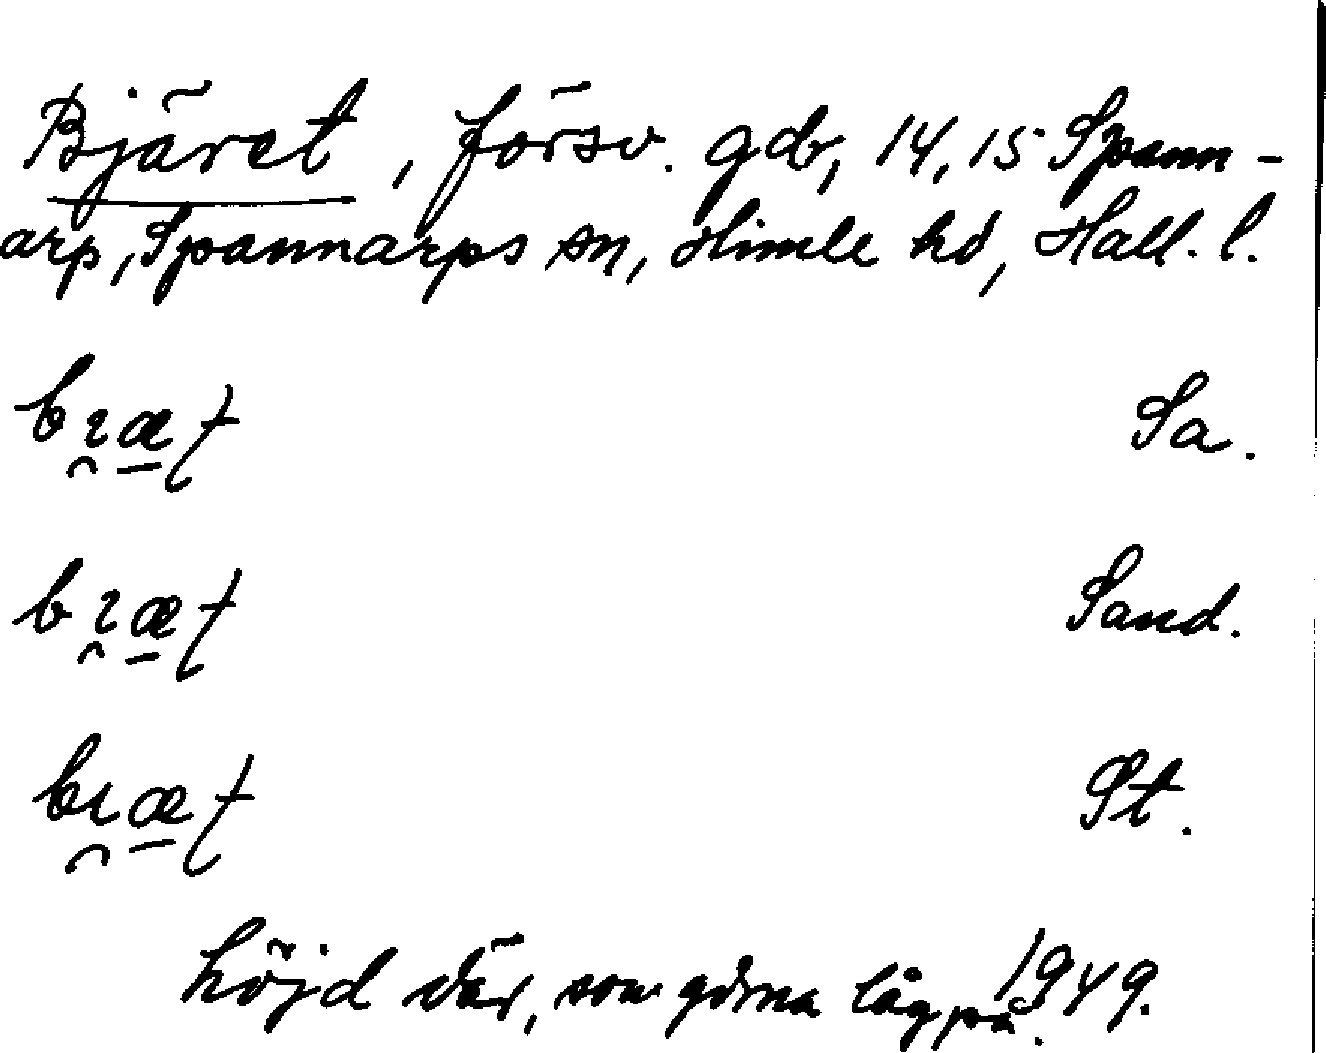 Bjäret, försv. gdr, 14, 15 Spann-
arp, Spannarps sn, Himle hd, Hall. l.
bı̯æ̱t Sa.
bı̯æ̱t Sand.
bı̯æ̱t St.
höjd där, som gårdarna låg på. 1949.